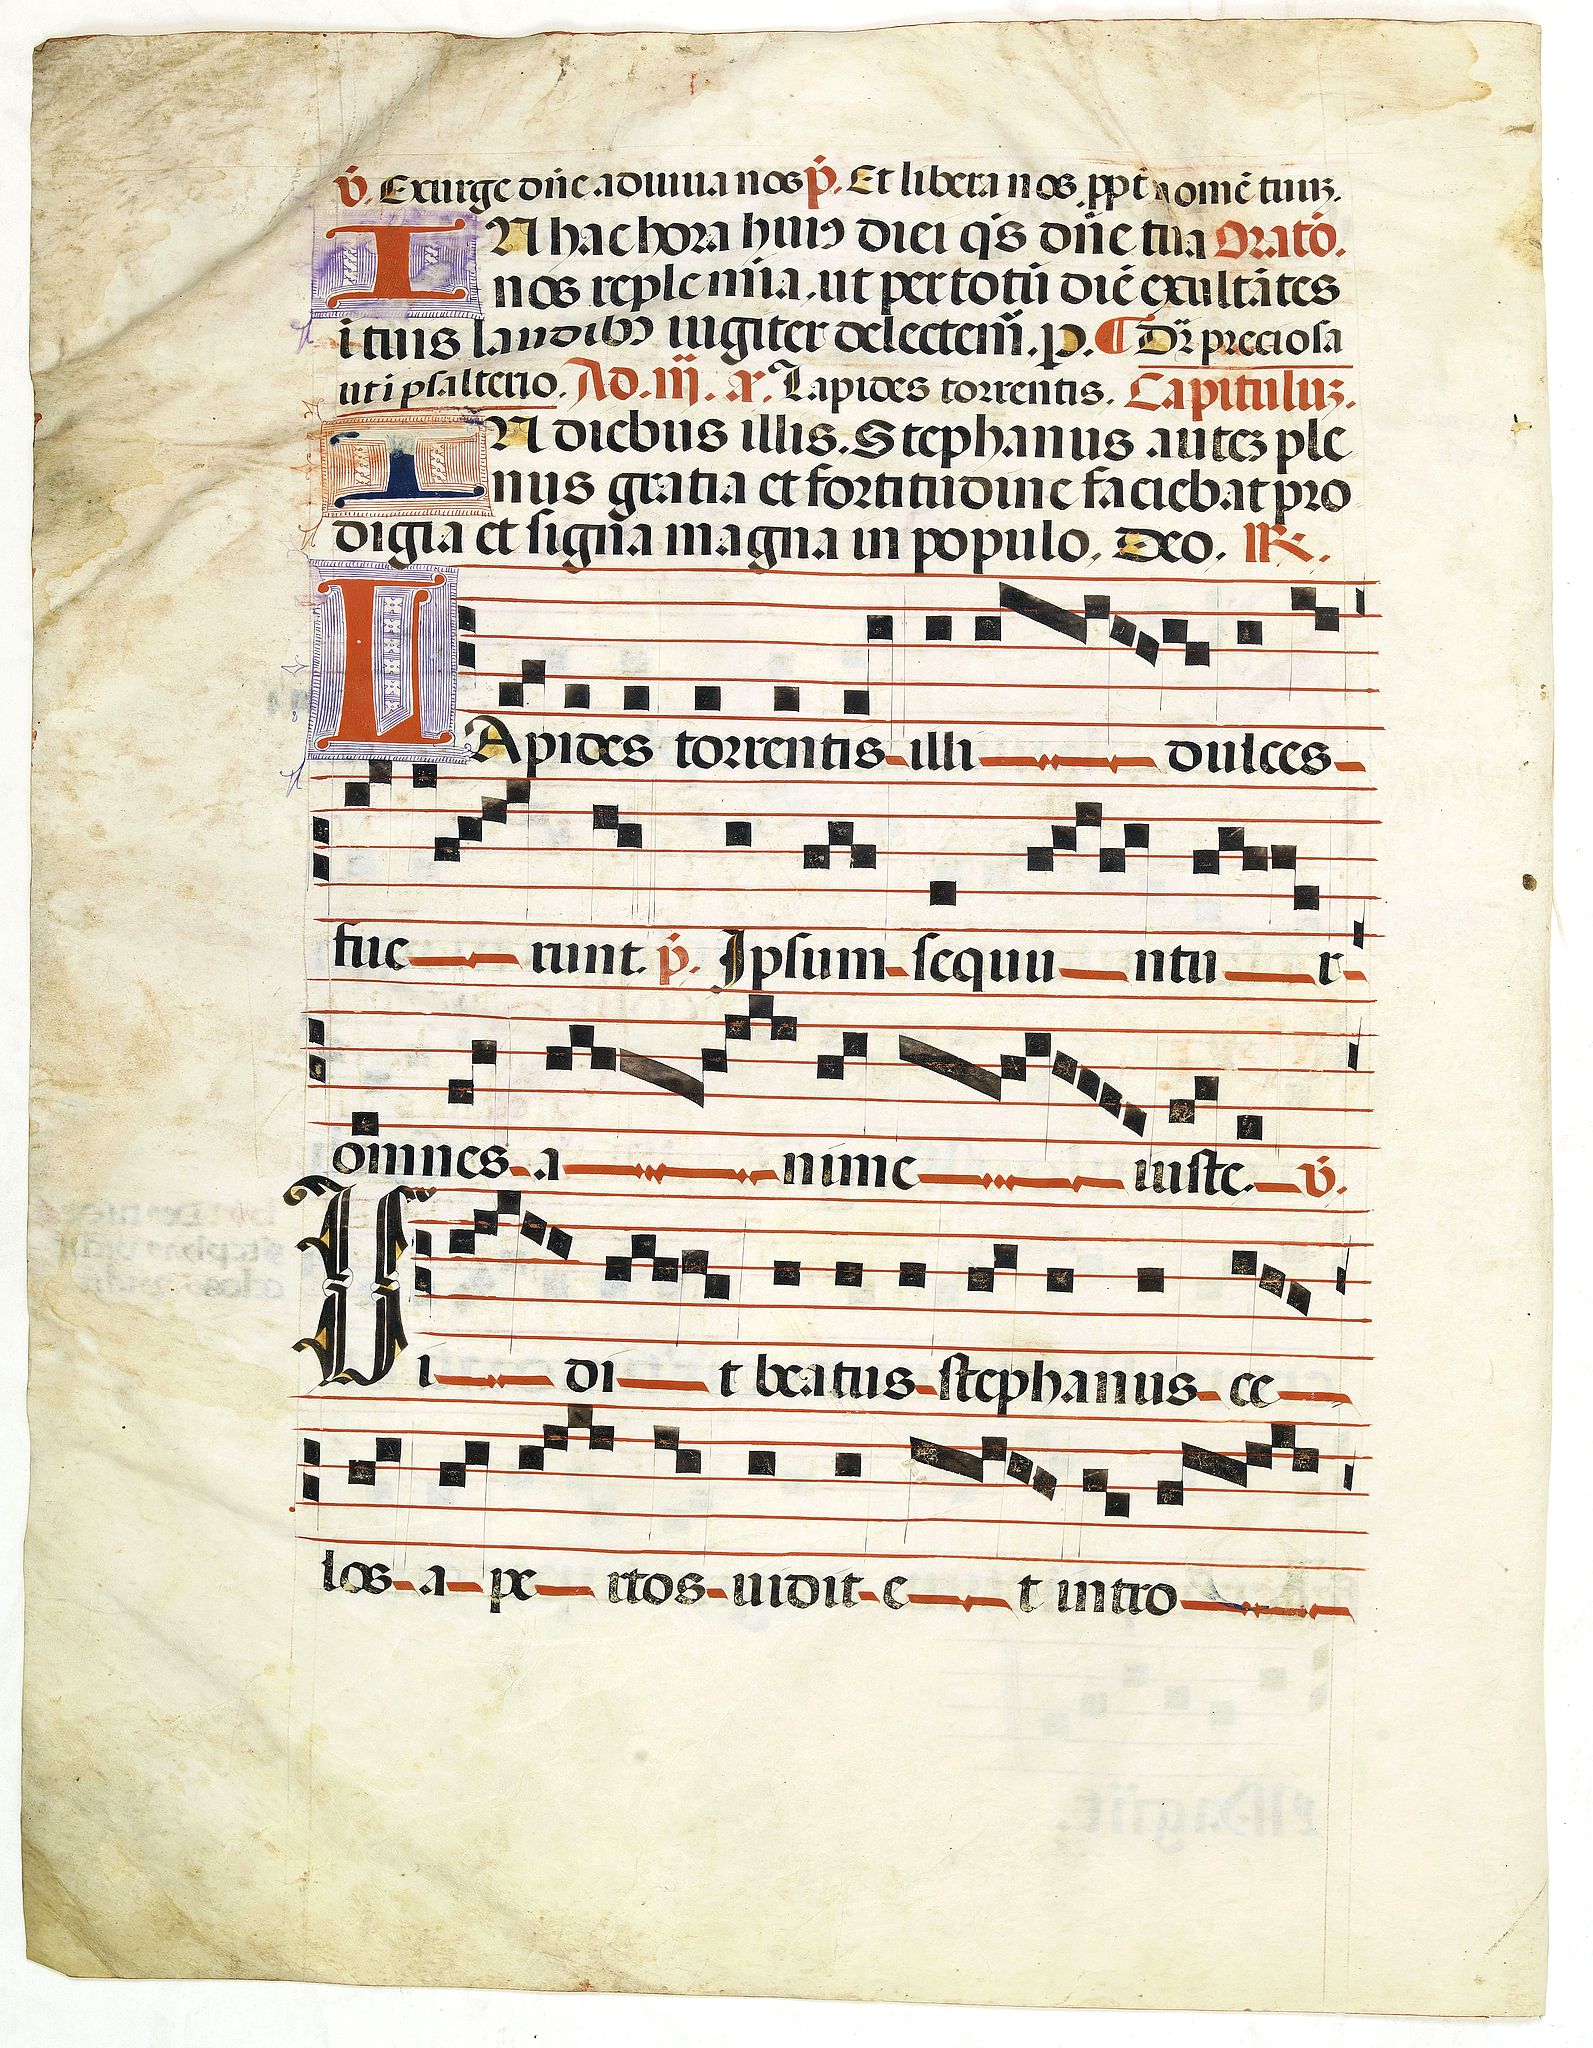 v̇. Exurge dñe adiuua nos ṗ. Et libera nos ꝓpt̄ nomē tuuꝫ.
IN hac hora huiꝰ diei q̄s dñe tua Oratō.
nos reple mīa, ut per totū diē exultātes
ī tuis laudibꝰ iugiter delectem̃. p. ¶ Dr̃ preciosa
ut ī psalterio. Ad .iij. a. Lapides torrentis. Capituluꝫ.
IN diebus illis. Stephanus auteꝫ ple
nus gratia et fortitudine faciebat pro
digia et signa magna in populo. Deo. R.
LApides torrentis illi dulces
fue runt. ṗ. Ipsum sequu ntu r
omnes a nime iuste. v̇.
Vi di t beatus stephanus ce
los a pe rtos uidit e t intro